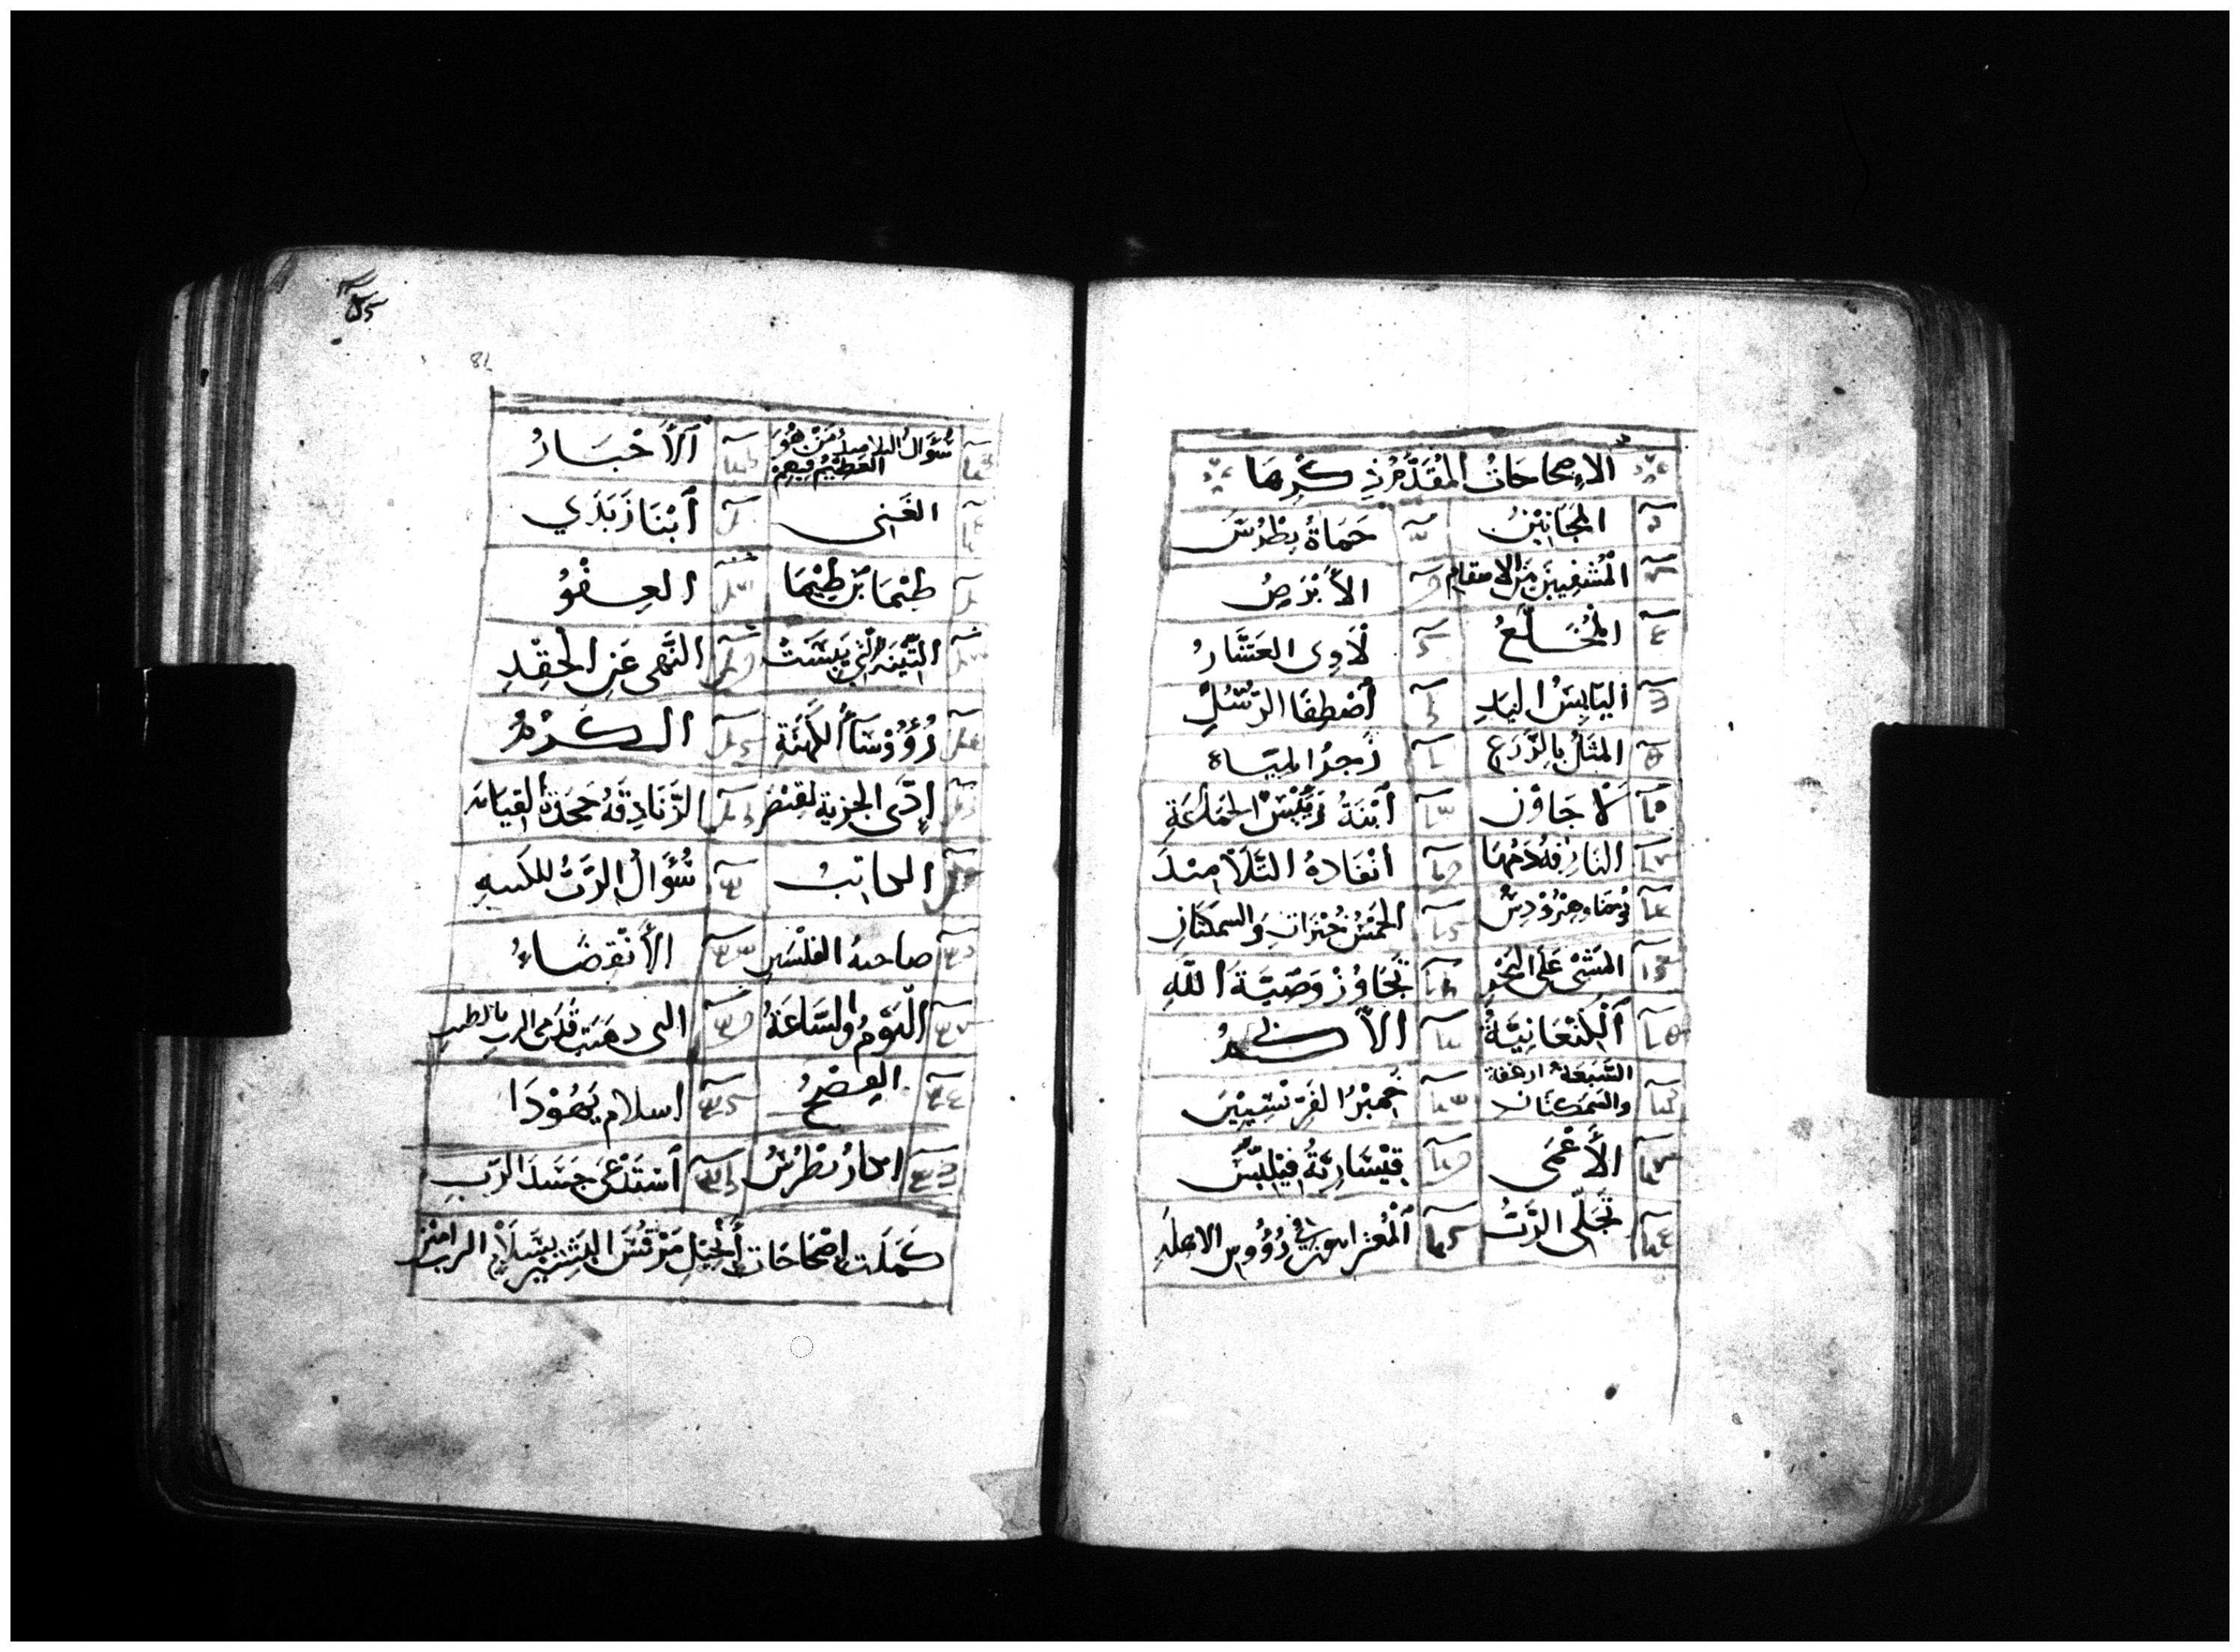 الإصحاحات المُقدَّم ذِكرها
المجانين
حَمَاةُ بِطْرُسَ
المُشفِيينَ مِنَ الاسقام
الأَبْرَصُ
المُخَلَّعُ
لَاوِى العَشَّارُ
اليَابِسُ اليَدِ
أَصْطِفَا الرُّسُلِ
المَثَلُ بِالزَّرَعِ
زَجرُ المِيَاه
لاجَاوُن
أبْنَةُ رَئِيسَ الجَمَاعَةِ
النَازِفَةُ دَمُهَا
انْفَاذهُ التَّلَامِيذَ
يُوحَنا وهِرُوْدِسُ
الخَمْسُ خُبْزَاتِ والسَمَكتَانِ
المَشْىُ عَلَى البَحْرِ
تَجَاوُزْ وَصِيَّةَ اللّهِ
ٱلْكَنْعَانِيَّةُ
السَّبعَةُ ارغفة
والسَّمَكتَان
خَمِيْرُ الفَرِيْسِيِيْنَ
الأَعْمَى
قِيْسَارِيَّةُ فِيْلِبُّسَ
تَجَلِّى الرَّبُّ
المُعترا فِي رُؤُوسِ الاهلة
سُؤَالُ التلاميذ مَنْ هُوَ
العَظِيْمُ فِيهِمْ
الأَحْبَارُ
الغَنِى
أَبْنَا زَبَدَي
طِيْمَا بْنَ طِيْمَا
العِفْوُ
التِّيْنَه الَّتِي يَبِسَتْ
النَّهى عَنِ الحِقْدِ
رُؤُوْسَآءُ الكَهَنَةِ
الكَرْمُ
إدَّى الجزية لقيصر
الزَّنَادِقَهُ جَحَدَةُ القِيَامَة
الكاتبُ
سُؤَالُ الرَّبُّ للكتبه
صاحبة الفلْسَينِ
الأَنْقِضَاءُ
اليَوْمُ والسَّاعَةُ
التى دهَنَت قَدَمى الرب بالطيب
الفِصْحُ
اسلام يَهُوْدَا
انكارُ بطْرُسُ
أسْتَدْعَى جَسَدَ الرَّبِ
كَمَلَت إصْحَاحَات أنجِيْلِ مَرْقُسَ البَشِيْر بِسَلاَمِ الرب امين
81